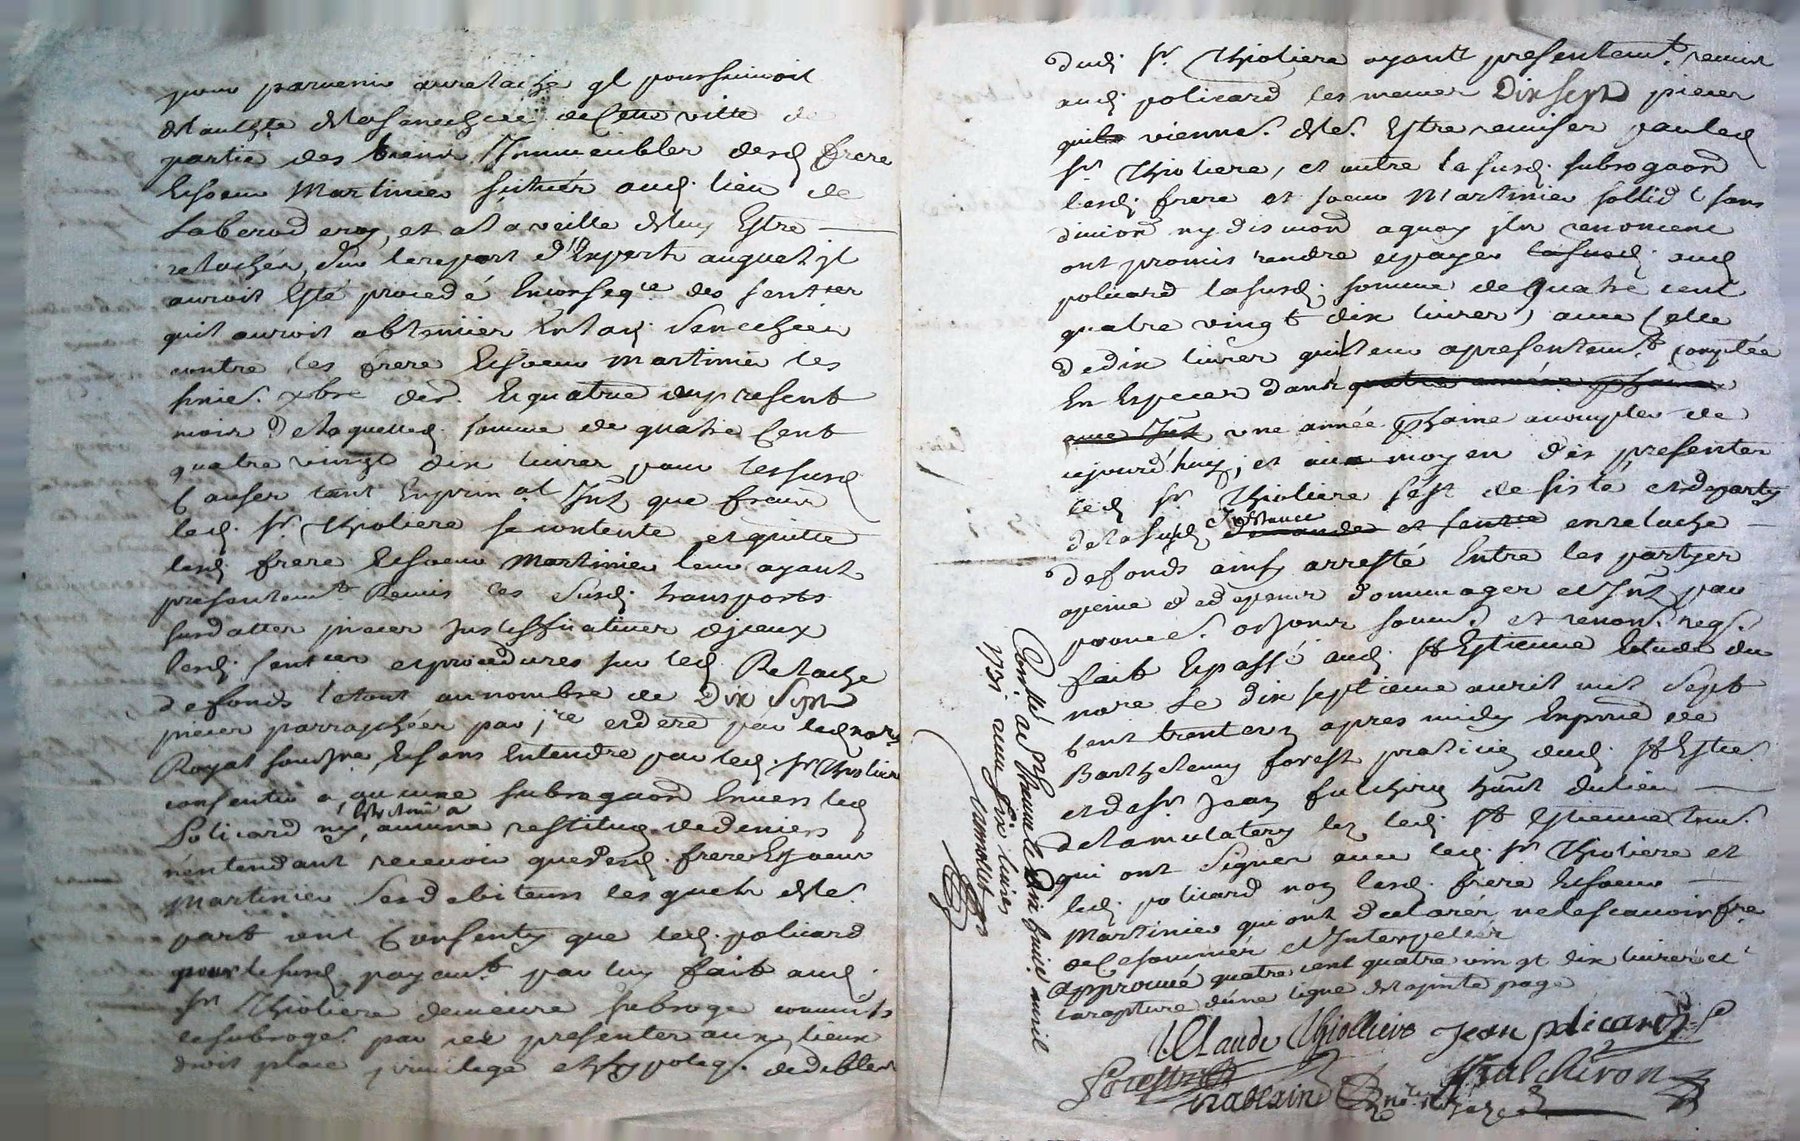 pour parvenir au relache ql poursuivoit
de lauthte de la senechcée de Cette ville de
partie des biens Immeubles desd frere
Et soeur Martinier situés aud. lieu de
Laberod et a la veille d'luy Estre
relachés, sur le raport d'Experts auquel jl
auroit Esté procedé En conseqce des sentces
quil auroit obtenües En lad. Senechcée
contre les frere Et soeur Martinier les
xbre der. Et quatre du present
mois De laquelled. somme de quatre Cent
quatre vingt dix livres pour les susd
Causes tant En prinal Intz que frais
led. sr. Thioliere se contente et quitte
lesd. frere Et soeur Martinier leur ayant
presentemt. Remis les Susd. transports
susdattes pieces Justifficatives djceux
lesd. sentces et procedures sur led. Relache
de fonds le tout au nombre de Dix Sept
pieces parraphées par pre et dere par led nore
Royal soussné, Et sans Entendre par led. sr. Thioliere
consentir a aucune subrogaon Envers led
Policard ny, aucune restituon de deniers
n'entendant recevoir que desd. frere Et soeur
Martinier ses debiteurs lesquels de le.
part ont Consenty que led. policard
pour le susd. payemt. par luy fait aud.
sr. Thioliere demeure subrogé comme ils
le subrogt. par ces presentes aux lieux
droit place privilege et hypoteq. dedibles
dud. sr. Thioliere ayant presentemt. remis
aud. policard les memes Dix sept pieces
quils viennt. de le. Estre remises par led
sr. Thioliere, et outre la susd. subrogaon
lesd. frere et soeur Martinier sollidt sans
division ny dis on a quoy jls renoncent
ont promis rendre et payer la susd. aud
policard la susd. somme de quatre cent
quatre vingt dix livres, avec Celle
de dix livres quil leur a presentemt. Comptée
En Especes dans quatre années phaines
avec Intz une année phaine a compter de
ajourd'huy, et au moyen des presentes
led. sr. Thioliere s'est desisté et departy
de la susd. Instance demande et sentce en relache
de fonds ainsy arresté Entre les partyes
a peine de depens dommages et Intz par
promes. oblions soums. et renons. regt.
fait Et passé aud. St Estienne Estude du
nore Le dix septieme avril mil Sept
Cent trente un apres midy En prnce de
Barthelemy forest praticien dud. St Estne.
et de sr Jean fulchiron habnt du lieu
de la mulatiere lez led. St Etienne tems.
qui ont Signés avec led. sr. Thioliere et
led. policard non lesd. frere Et soeur
Martinier qui ont declarés ne le scavoir fre
de Ce sommés et Interpellés
approuvé quatre cent quatre vingt dix livres et
la rapture dune ligne de la pnte page
Claude Thiolliere Jean policard
Forest fulchiron
Controllé a St Chaumt le dix huit. avril
1731 reçu six livres